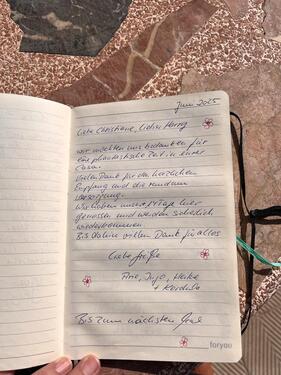 Juni 2025
Liebe Christiane, lieber
wir möchten uns bedanken für
eine phantastische Zeit in Eurer
Casa.
Vielen Dank für den herzlichen
Empfang und die rundum
Versorgung.
Wir haben unsere Tage hier
genossen und werden sicherlich
wiederkommen.
Bis dahin vielen Dank für alles
Liebe Grüße
Heike
+
Bis zum nächsten Mal
foryou